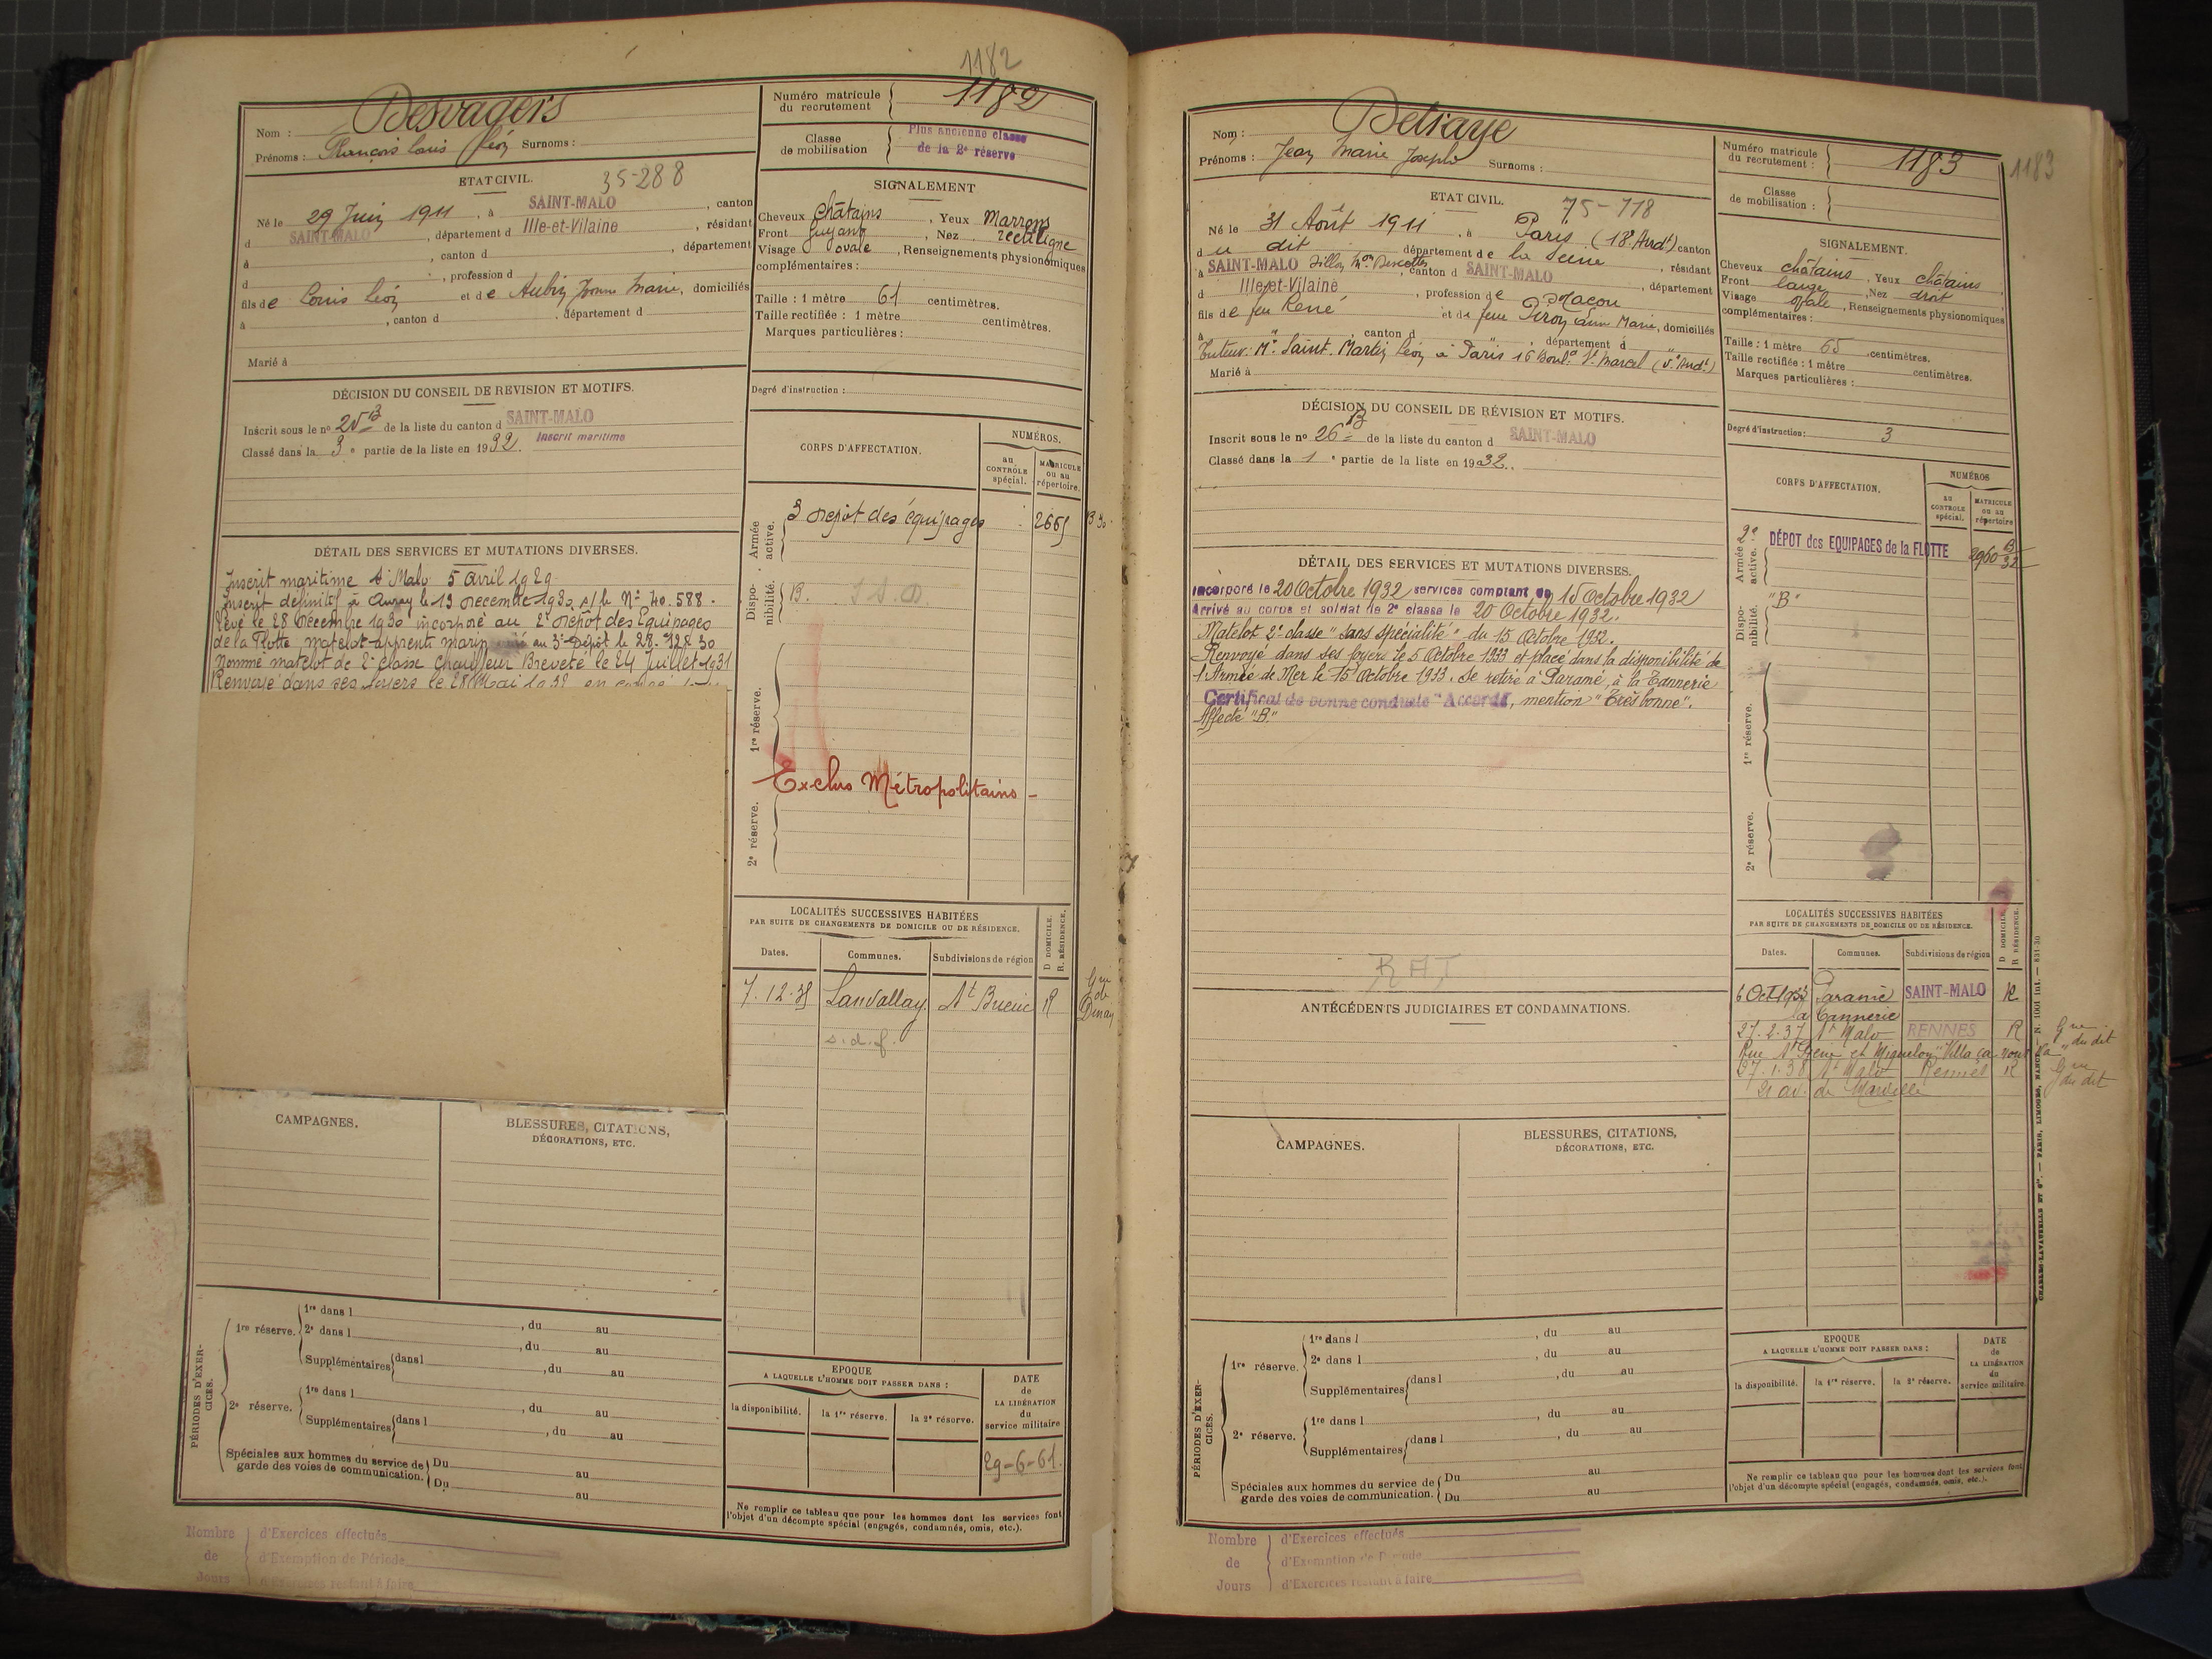 1182
Nom : Desvagers
Prénoms : François Louis Léon Surnoms :
Numéro matricule du recrutement 1182
Classe de mobilisation Plus ancienne classe de la 2e réserve
ETAT CIVIL. 35-288
Né le 29 Juin 1911, à SAINT-MALO, canton
d SAINT-MALO, département d Ille-et-Vilaine, résidant
à , canton d , département
d , profession d
fils de Louis Léon et de Aubin Yvonne Marie, domiciliés
à , canton d , département d
Marié à
SIGNALEMENT
Cheveux châtains, Yeux Marrons
Front fuyant, Nez rectiligne
Visage ovale, Renseignements physionomiques
complémentaires :
Taille : 1 mètre 61 centimètres.
Taille rectifiée : 1 mètre centimètres.
Marques particulières :
Degré d'instruction :
DÉCISION DU CONSEIL DE REVISION ET MOTIFS.
Inscrit sous le no 25 B de la liste du canton d SAINT-MALO
Classé dans la 3e partie de la liste en 1932. Inscrit maritime
CORPS D'AFFECTATION.
NUMÉROS.
au CONTROLE spécial.
MATRICULE ou au répertoire.
Armée active. 3 Dépôt des équipages 2665 B 30
Dispo- nibilité. B.
1re réserve.
Exclus Métropolitains -
2e réserve.
DÉTAIL DES SERVICES ET MUTATIONS DIVERSES.
Inscrit maritime St Malo 5 Avril 1929
Inscrit définitif à Auray le 13 Décembre 1930 s/ le No 40.588.
Levé le 28 Décembre 1930 incorporé au 2e Dépôt des Equipages
de la Flotte matelot apprenti marin au 3e Dépôt le 28-12-30
Nommé matelot de 2e classe Chauffeur Breveté le 24 Juillet 1931
Renvoyé dans ses foyers le 28 Mai 1932 en congé
LOCALITÉS SUCCESSIVES HABITÉES
PAR SUITE DE CHANGEMENTS DE DOMICILE OU DE RÉSIDENCE.
Dates. Communes. Subdivisions de région D DOMICILE. R. RÉSIDENCE.
7.12.35 Lanvallay St Brieuc R Gie de Dinan
s.d.f.
CAMPAGNES.
BLESSURES, CITATIONS, DÉCORATIONS, ETC.
PÉRIODES D'EXERCICES.
1re réserve. 1re dans l , du au
2e dans l , du au
Supplémentaires dans l , du au
2e réserve. 1re dans l , du au
Supplémentaires dans l , du au
Spéciales aux hommes du service de garde des voies de communication. Du au
Du au
EPOQUE
A LAQUELLE L'HOMME DOIT PASSER DANS :
la disponibilité. la 1re réserve. la 2e réserve.
DATE de LA LIBÉRATION du service militaire
29-6-61.
Ne remplir ce tableau que pour les hommes dont les services font
l'objet d'un décompte spécial (engagés, condamnés, omis, etc.).
Nombre de Jours
d'Exercices effectués
d'Exemption de Période
d'Exercices restant à faire
Nom : Delraye
Prénoms : Jean Marie Joseph Surnoms :
Numéro matricule du recrutement : 1183
1183
Classe de mobilisation :
ETAT CIVIL. 75-118
Né le 31 Août 1911, à Paris (13e Arrdt) canton
du dit département de la Seine, résidant
à SAINT-MALO Sillon, canton d SAINT-MALO, département
d Ille-et-Vilaine, profession de Maçon
fils de feu René et de feue Piron Marie, domiciliés
à " , canton d " , département d "
Tuteur: Mr Saint-Martin Léon à Paris 16 Bould St Marcel (5e Arrdt)
Marié à
SIGNALEMENT.
Cheveux châtains, Yeux châtains
Front large, Nez droit
Visage ovale, Renseignements physionomiques
complémentaires :
Taille : 1 mètre 65 centimètres.
Taille rectifiée : 1 mètre centimètres.
Marques particulières :
Degré d'instruction : 3
DÉCISION DU CONSEIL DE RÉVISION ET MOTIFS.
Inscrit sous le no 26 B de la liste du canton d SAINT-MALO
Classé dans la 1e partie de la liste en 1932.
CORPS D'AFFECTATION.
NUMÉROS
au CONTROLE spécial.
MATRICULE ou au répertoire
Armée active. 2e DÉPOT des EQUIPAGES de la FLOTTE 2960 B 32
Dispo- nibilité. "B"
1re réserve.
2e réserve.
DÉTAIL DES SERVICES ET MUTATIONS DIVERSES.
Incorporé le 20 Octobre 1932 services comptant du 15 Octobre 1932
Arrivé au corps et soldat de 2e classe le 20 Octobre 1932.
Matelot 2e classe "sans spécialité" du 15 Octobre 1932.
Renvoyé dans ses foyers le 5 Octobre 1933 et placé dans la disponibilité de
l'Armée de Mer le 15 Octobre 1933. Se retire à Paramé, à la Tannerie
Certificat de bonne conduite "Accordé, mention "Très bonne".
Affecté "B."
RAT
ANTÉCÉDENTS JUDICIAIRES ET CONDAMNATIONS.
LOCALITÉS SUCCESSIVES HABITÉES
PAR SUITE DE CHANGEMENTS DE DOMICILE OU DE RÉSIDENCE.
Dates. Communes. Subdivisions de région D DOMICILE. R RÉSIDENCE.
6 Oct 1933 Paramé SAINT-MALO R
la Tannerie
27-2-37 St Malo RENNES R Gne du dit
Rue St Pierre et Miquelon "Villa
27.1.38 St Malo Rennes R Gne du dit
21 av. de Marville
CAMPAGNES.
BLESSURES, CITATIONS, DÉCORATIONS, ETC.
PÉRIODES D'EXERCICES.
1re réserve. 1re dans l , du au
2e dans l , du au
Supplémentaires dans l , du au
2e réserve. 1re dans l , du au
Supplémentaires dans l , du au
Spéciales aux hommes du service de garde des voies de communication. Du au
Du au
EPOQUE
A LAQUELLE L'HOMME DOIT PASSER DANS :
la disponibilité. la 1re réserve. la 2e réserve.
DATE de LA LIBÉRATION du service militaire
Ne remplir ce tableau que pour les hommes dont les services font
l'objet d'un décompte spécial (engagés, condamnés, omis, etc.).
CHARLES-LAVAUZELLE ET Cie. — PARIS, LIMOGES, NANCY. N. 1001 int. — 831-30
Nombre de Jours
d'Exercices effectués
d'Exemption de Période
d'Exercices restant à faire